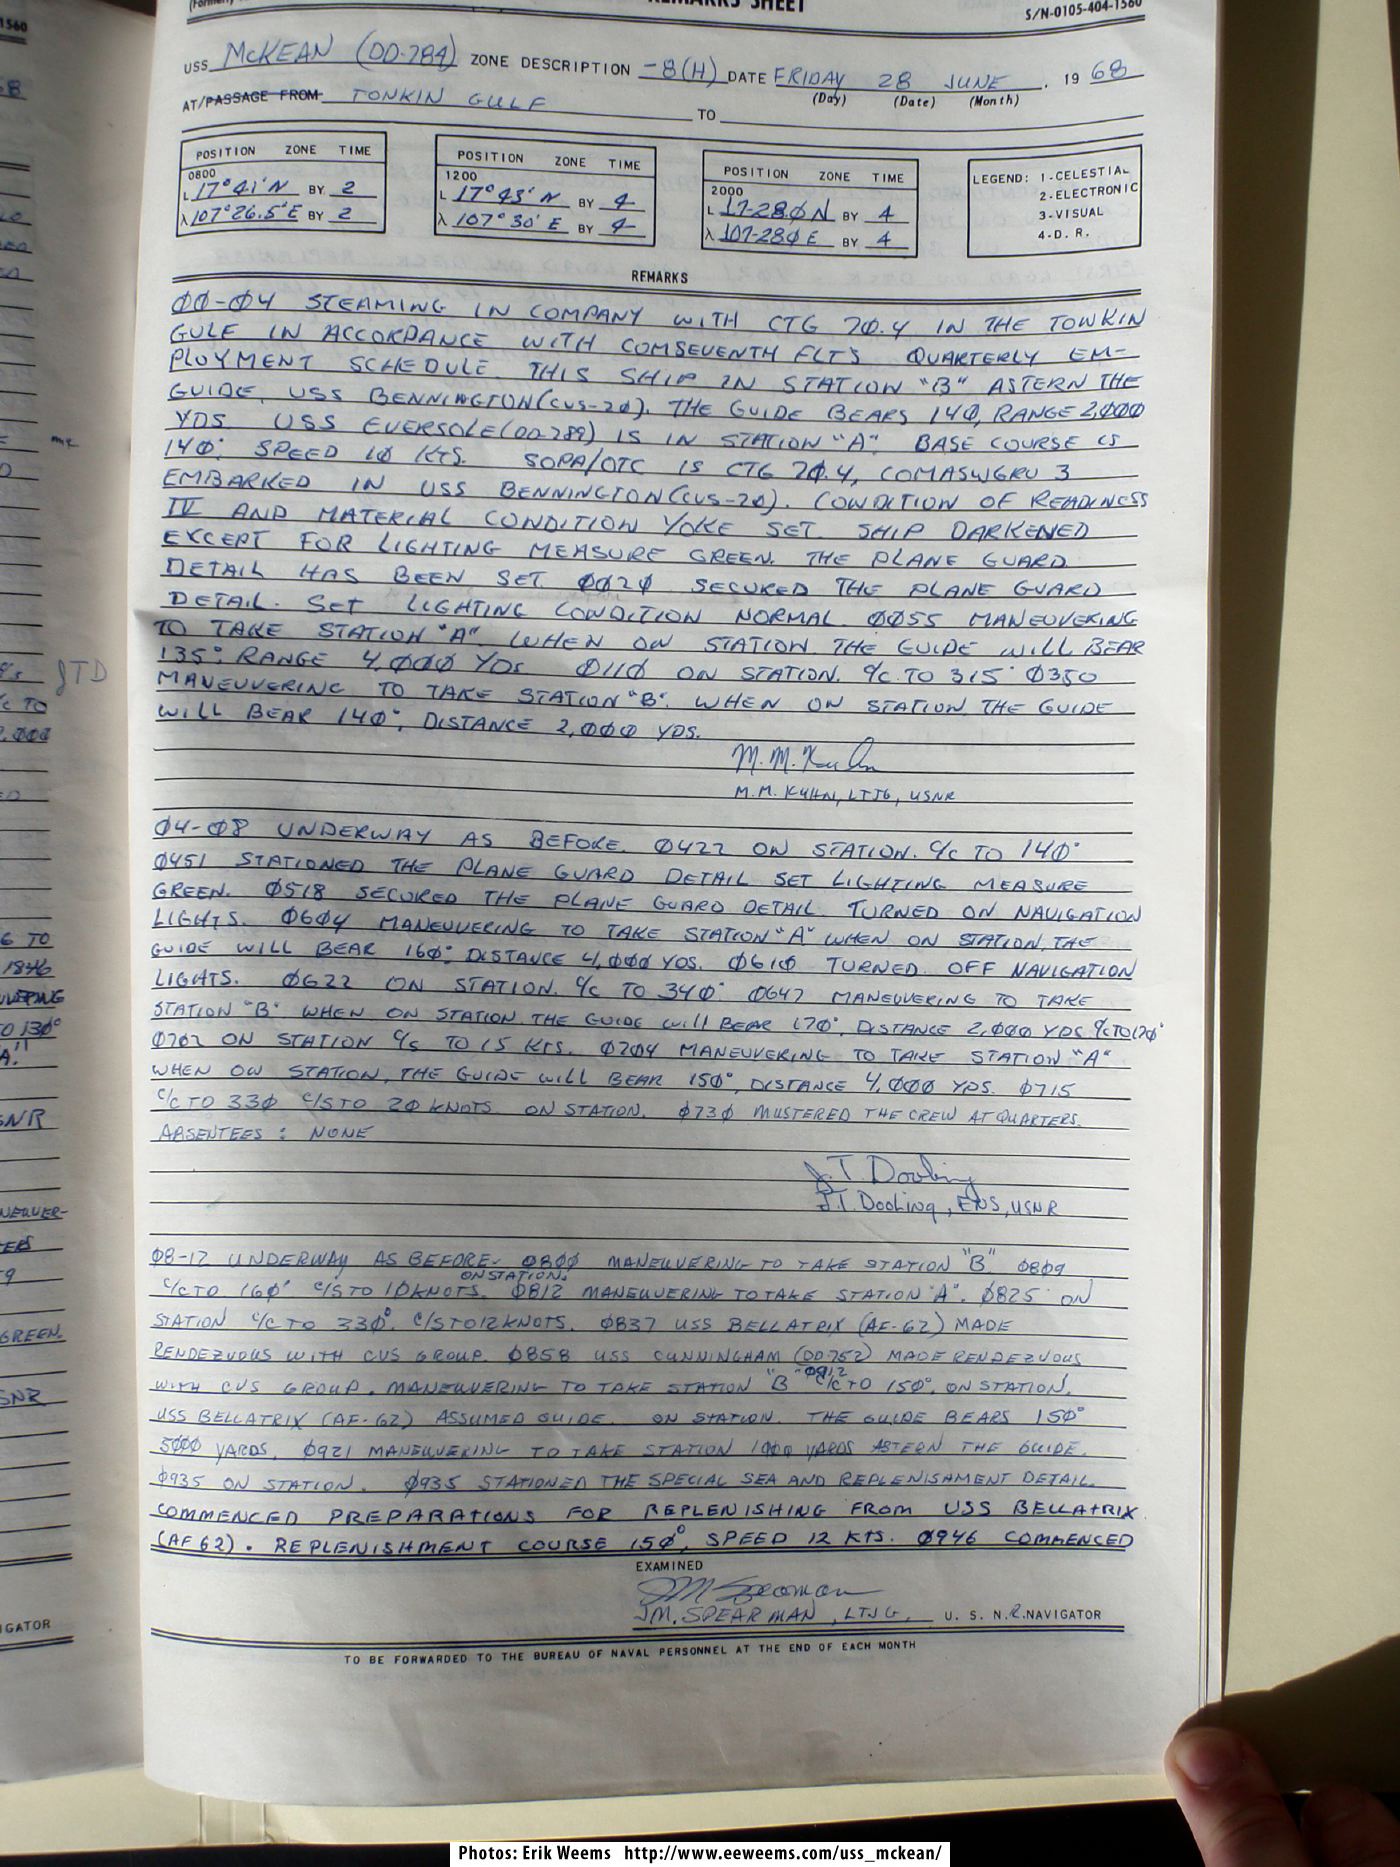 REMARKS SHEET
S/N-0105-404-1560
USS McKEAN (DD-784) ZONE DESCRIPTION -8(H) DATE FRIDAY 28 JUNE, 1968
(Day) (Date) (Month)
AT/PASSAGE FROM TONKIN GULF TO
POSITION ZONE TIME
0800
L 17°41'N BY 2
λ 107°26.5'E BY 2
POSITION ZONE TIME
1200
L 17°43'N BY 4
λ 107°30'E BY 4
POSITION ZONE TIME
2000
L 17-28.0N BY 4
λ 107-28.0E BY 4
LEGEND: 1-CELESTIAL
2-ELECTRONIC
3-VISUAL
4-D. R.
REMARKS
00-04 STEAMING IN COMPANY WITH CTG 70.4 IN THE TONKIN
GULF IN ACCORDANCE WITH COMSEVENTH FLT'S QUARTERLY EM-
PLOYMENT SCHEDULE. THIS SHIP IN STATION "B" ASTERN THE
GUIDE, USS BENNINGTON(CVS-20). THE GUIDE BEARS 140, RANGE 2,000
YDS. USS EVERSOLE(DD-789) IS IN STATION "A". BASE COURSE IS
140°, SPEED 10 KTS. SOPA/OTC IS CTG 70.4, COMASWGRU 3
EMBARKED IN USS BENNINGTON(CVS-20). CONDITION OF READINESS
IV AND MATERIAL CONDITION YOKE SET. SHIP DARKENED
EXCEPT FOR LIGHTING MEASURE GREEN. THE PLANE GUARD
DETAIL HAS BEEN SET. 0020 SECURED THE PLANE GUARD
DETAIL. SET LIGHTING CONDITION NORMAL. 0055 MANEUVERING
TO TAKE STATION "A". WHEN ON STATION THE GUIDE WILL BEAR
135°, RANGE 4,000 YDS. 0110 ON STATION. C/C TO 315° 0350
MANEUVERING TO TAKE STATION "B". WHEN ON STATION THE GUIDE
WILL BEAR 140°, DISTANCE 2,000 YDS.
M. M. Kuhn
M.M. KUHN, LTJG, USNR
04-08 UNDERWAY AS BEFORE. 0422 ON STATION. C/C TO 140°
0451 STATIONED THE PLANE GUARD DETAIL SET LIGHTING MEASURE
GREEN. 0518 SECURED THE PLANE GUARD DETAIL. TURNED ON NAVIGATION
LIGHTS. 0604 MANEUVERING TO TAKE STATION "A" WHEN ON STATION, THE
GUIDE WILL BEAR 160°, DISTANCE 4,000 YDS. 0610 TURNED OFF NAVIGATION
LIGHTS. 0622 ON STATION. C/C TO 340° 0647 MANEUVERING TO TAKE
STATION "B" WHEN ON STATION THE GUIDE WILL BEAR 170°, DISTANCE 2,000 YDS. C/C TO 170°
0702 ON STATION C/S TO 15 KTS. 0704 MANEUVERING TO TAKE STATION "A"
WHEN ON STATION, THE GUIDE WILL BEAR 150°, DISTANCE 4,000 YDS. 0715
C/C TO 330 C/S TO 20 KNOTS ON STATION. 0730 MUSTERED THE CREW AT QUARTERS.
ABSENTEES: NONE
J. T. Dooling
J.T. Dooling, ENS, USNR
08-12 UNDERWAY AS BEFORE. 0800 MANEUVERING TO TAKE STATION "B". 0809
ON STATION.
C/C TO 160° C/S TO 10 KNOTS. 0812 MANEUVERING TO TAKE STATION "A". 0825 ON
STATION C/C TO 330°. C/S TO 12 KNOTS. 0837 USS BELLATRIX (AF-62) MADE
RENDEZVOUS WITH CVS GROUP. 0858 USS CUNNINGHAM (DD752) MADE RENDEZVOUS
WITH CVS GROUP. MANEUVERING TO TAKE STATION "B" 0912 C/C TO 150°. ON STATION.
USS BELLATRIX (AF-62) ASSUMED GUIDE. ON STATION. THE GUIDE BEARS 150°
5000 YARDS. 0921 MANEUVERING TO TAKE STATION 1000 YARDS ASTERN THE GUIDE.
0935 ON STATION. 0935 STATIONED THE SPECIAL SEA AND REPLENISHMENT DETAIL.
COMMENCED PREPARATIONS FOR REPLENISHING FROM USS BELLATRIX
(AF 62). REPLENISHMENT COURSE 150°, SPEED 12 KTS. 0946 COMMENCED
EXAMINED
JM Spearman
J.M. SPEARMAN, LTJG, U. S. N.R. NAVIGATOR
TO BE FORWARDED TO THE BUREAU OF NAVAL PERSONNEL AT THE END OF EACH MONTH
Photos: Erik Weems http://www.eeweems.com/uss_mckean/